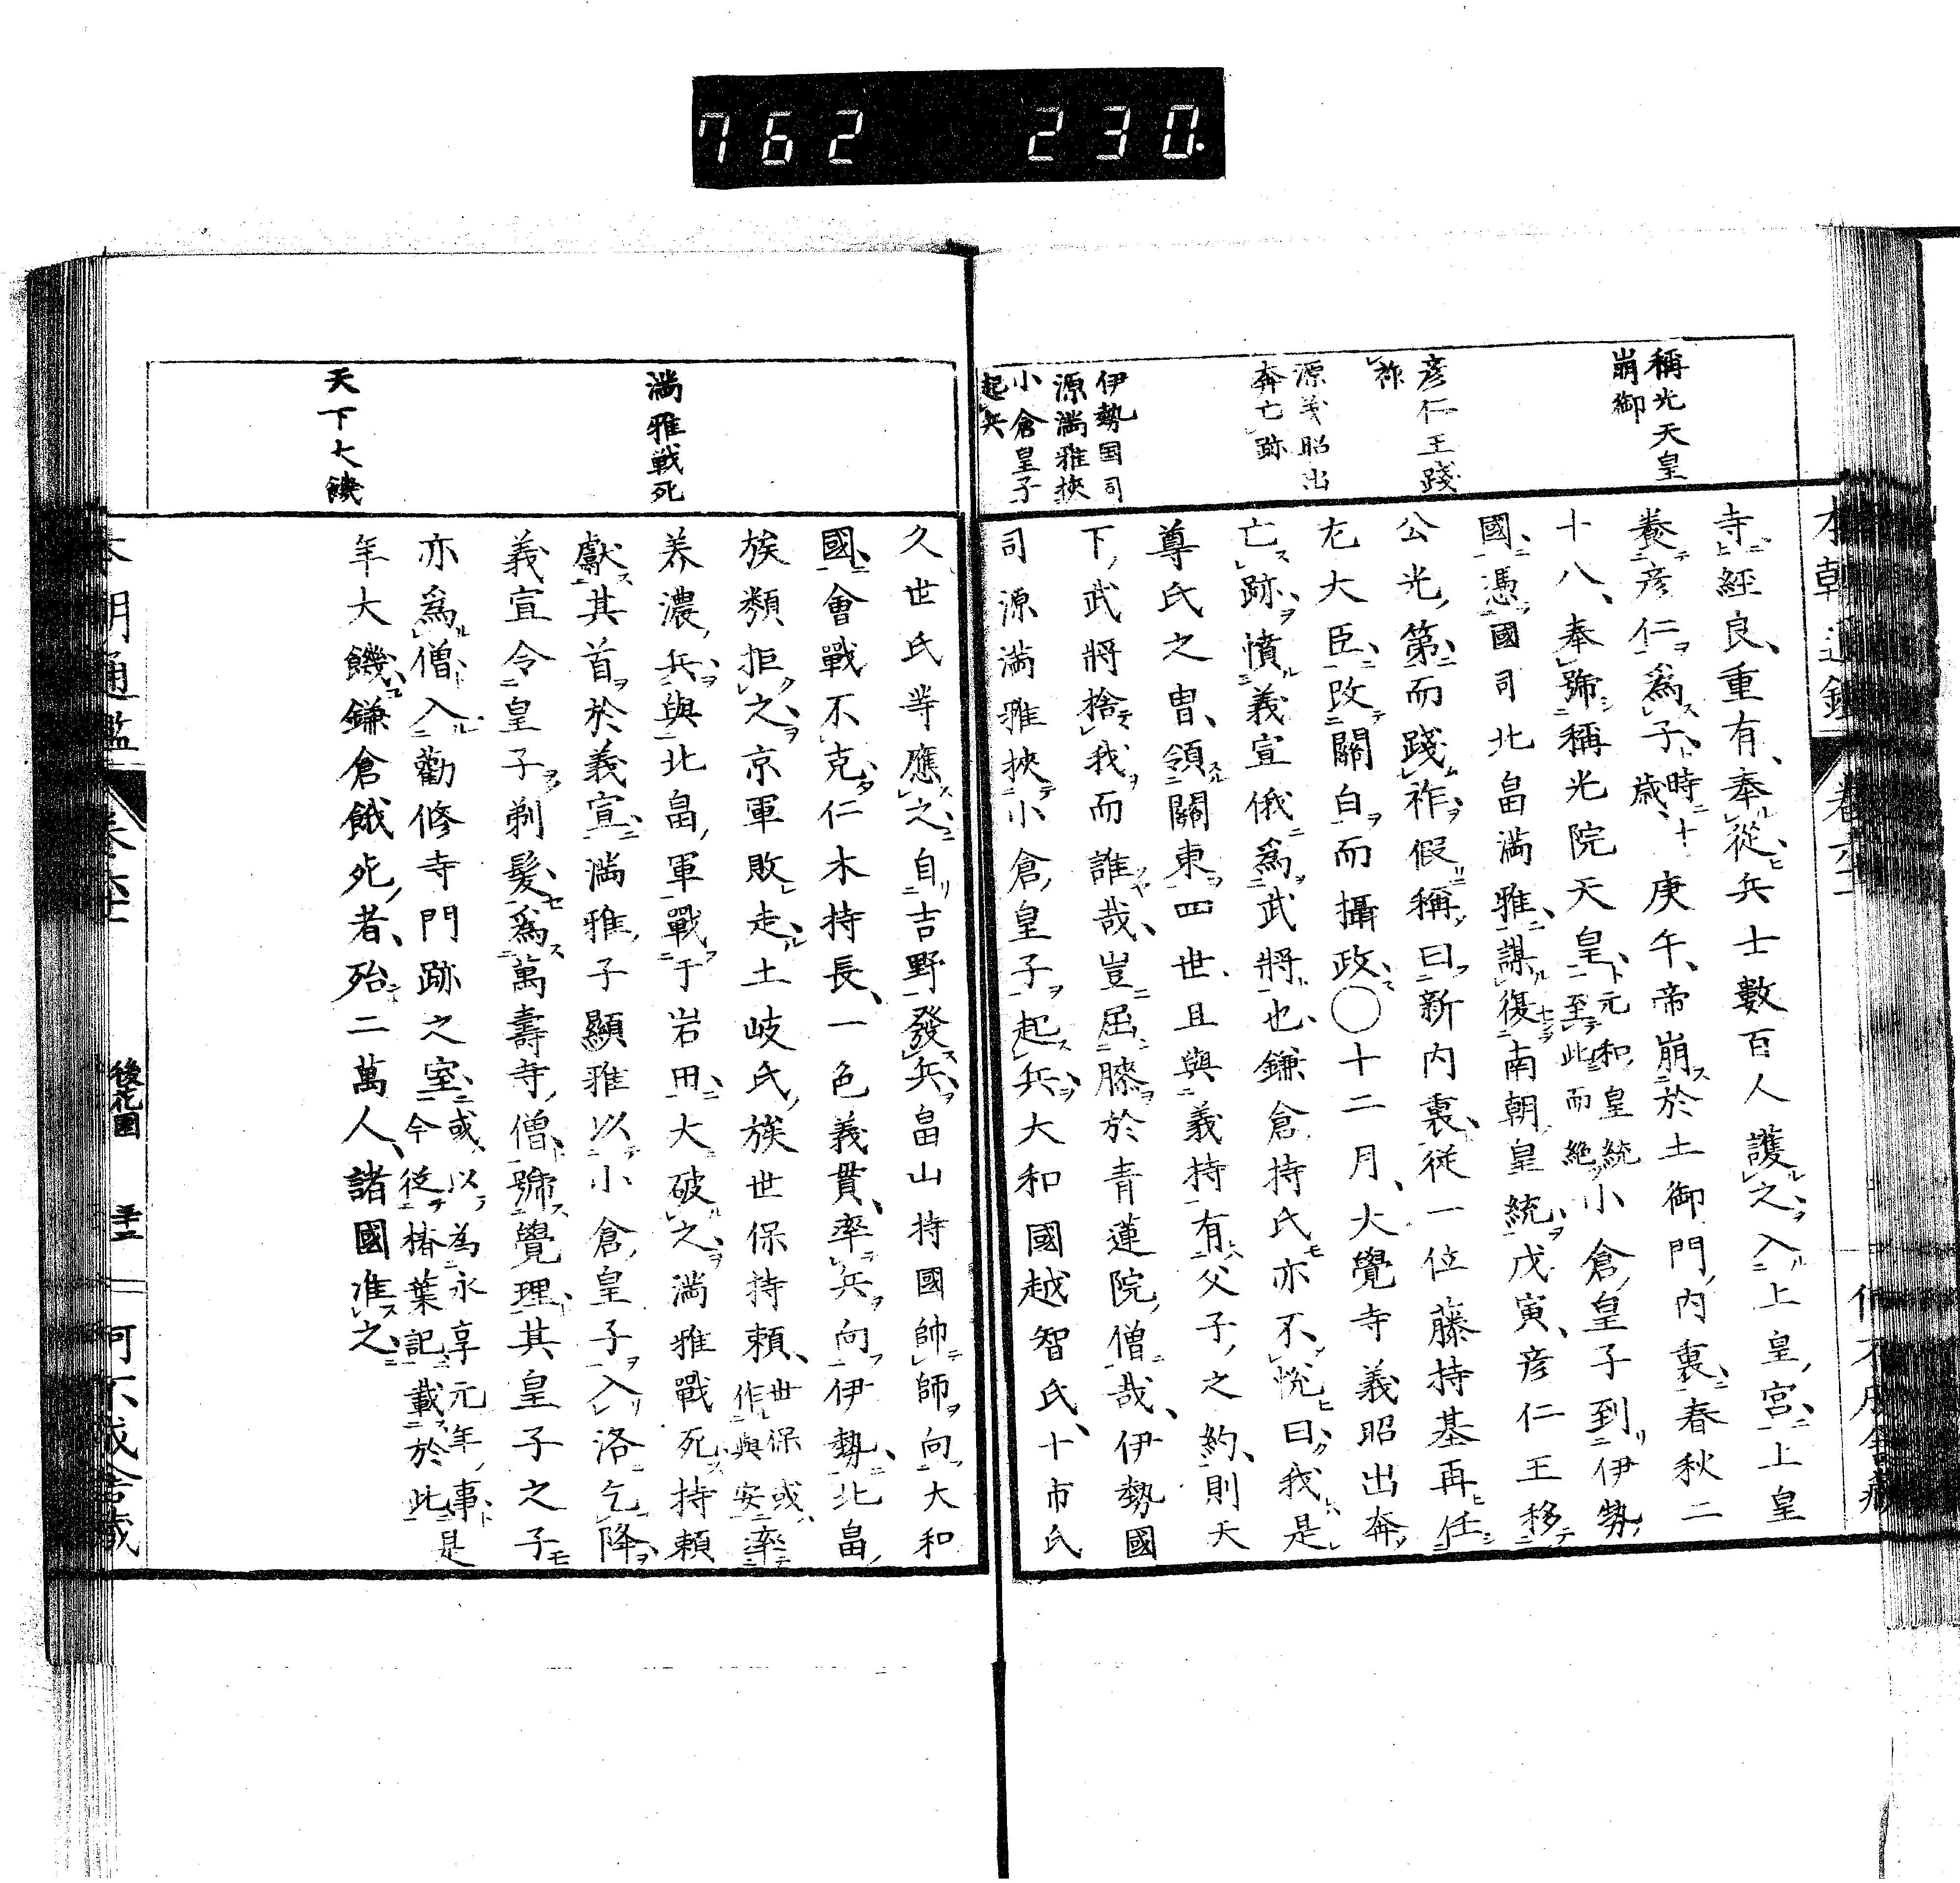 762 230
稱光天皇
崩御
彦仁王踐
祚
源義昭出
奔亡跡
伊勢国司
源満雅挾
小倉皇子
起兵
本朝通鑑
寺經良重有奉從兵士數百人護之入上皇宮上皇
養彦仁爲子時十歳庚午帝崩於土御門內裏春秋二
十八奉號稱光院天皇元和皇統至此而絶小倉皇子到伊勢
國憑國司北畠満雅謀復南朝皇統戊寅彦仁王移
公光第而踐祚假稱曰新內裏從一位藤持基再任
左大臣改關白而攝政〇十二月大覺寺義昭出奔
亡跡憤義宣俄爲武將也鎌倉持氏亦不悅曰我是
尊氏之曹領關東四世且與義持有父子之約則天
下武將捨我而誰哉豈屈膝於青蓮院僧哉伊勢國
司源満雅挾小倉皇子起兵大和國越智氏十市氏
満雅戰死
天下大饑
久世氏等應之自吉野發兵畠山持國帥師向大和
國會戰不克仁木持長一色義貫率兵向伊勢北畠
族類拒之京軍敗走土岐氏族世保持頼世保或作與安率
養濃兵與北畠軍戰于岩田大破之満雅戰死持頼
獻其首於義宣満雅子顯雅以小倉皇子入洛乞降
義宣令皇子剃髮爲萬壽寺僧號覺理其皇子之子
亦爲僧入勸修寺門跡之室或以為永享元年事今從椿葉記載於此是
年大饑鎌倉餓死者殆二萬人諸國准之
本朝通鑑
後花園